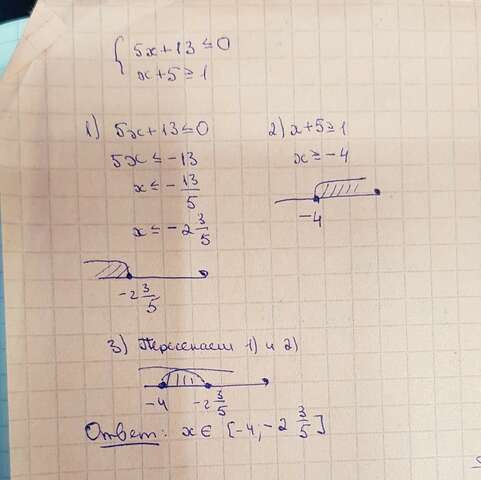 { 5x+13≤0
x+5≥1
1) 5x+13≤0
5x≤-13
x≤-13/5
x≤-2 3/5
-2 3/5
2) x+5≥1
x≥-4
-4
3) Пересекаем 1) и 2)
-4 -2 3/5
Ответ: x∈[-4;-2 3/5]